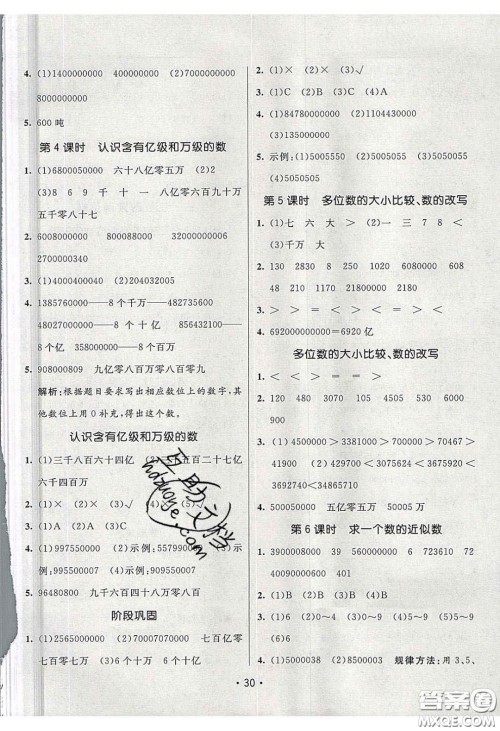 4. (1)1400000000 400000000 (2)7000000000
8000000000
5. 600 吨
第 4 课时 认识含有亿级和万级的数
1. (1)6800050000 六十八亿零五万 (2)2
(3)8 6 9 千 十 一 八亿零六百九十万
五千零八十七
2. 6008000000 800088000 32000000006
2700000340
3. (1)4000400040 (2)204032005
4. 1385760000——8 个千万——482735600
48027000000——8 个十亿 63800000——
8 个亿 358000000——8 个百万
5. 908000809 九亿零八百万零八百零九
解析:根据题目要求写出相应数位上的数字,其
他数位上用 0 补充,得出这个数。
认识含有亿级和万级的数
1. (1)三千八百六十四亿 (2)五百二十七亿
六千四百万
2. (1)× (2)× (3)× (4) (5)√
3. (1)A (2)A (3)B
4. (1)997550000 (2)示例:755000099
(3)995500007 (4)示例:995507000
5. 96480890 九千六百四十八万零八百九十
阶段巩固
1. (1)2565000000 (2)70007070000 七百亿零
七百零七万 (3)6 个十万 6 个十亿
2. (1)× (2)× (3)√
3. (1)C (2)B (3)C (4)A
4. (1)84780000000 (2)1104430000
(3)135000000
5. 示例:(1)5005550 (2)5055500 (3)5055005
(4)5050505
第 5 课时 多位数的大小比较、数的改写
1. (1)七 六 大 > (2)一 三 7 8 <
(3)千万 大
2. 130 2830 8 1030 6090000 8000000
28 480 5170 1170000 21800000 2180
3. > > = < > < = >
4. 692000000000=6920 亿
多位数的大小比较、数的改写
1. < < > = > < >
2. 120 480 3070 105 1000 4320 900
90000
3. (1)4500000>3381000>700000>670000>
129000 (2)3754200<3754290<3759420
<3795420
4. 500050000 五亿零五万 50005
第 6 课时 求一个数的近似数
1. 3900008000 39 560000000 6 723610 72
40200090000 402
2. (1)B (2)B (3)C (4)B
3. (1)6 (2)0~4 (3)0 (4)5~9 (5)5~9
(6)6
4. (1)5000038 (2)8500003 规律方法:用 3、5、
• 30 •
答案圈
MXQE.COM